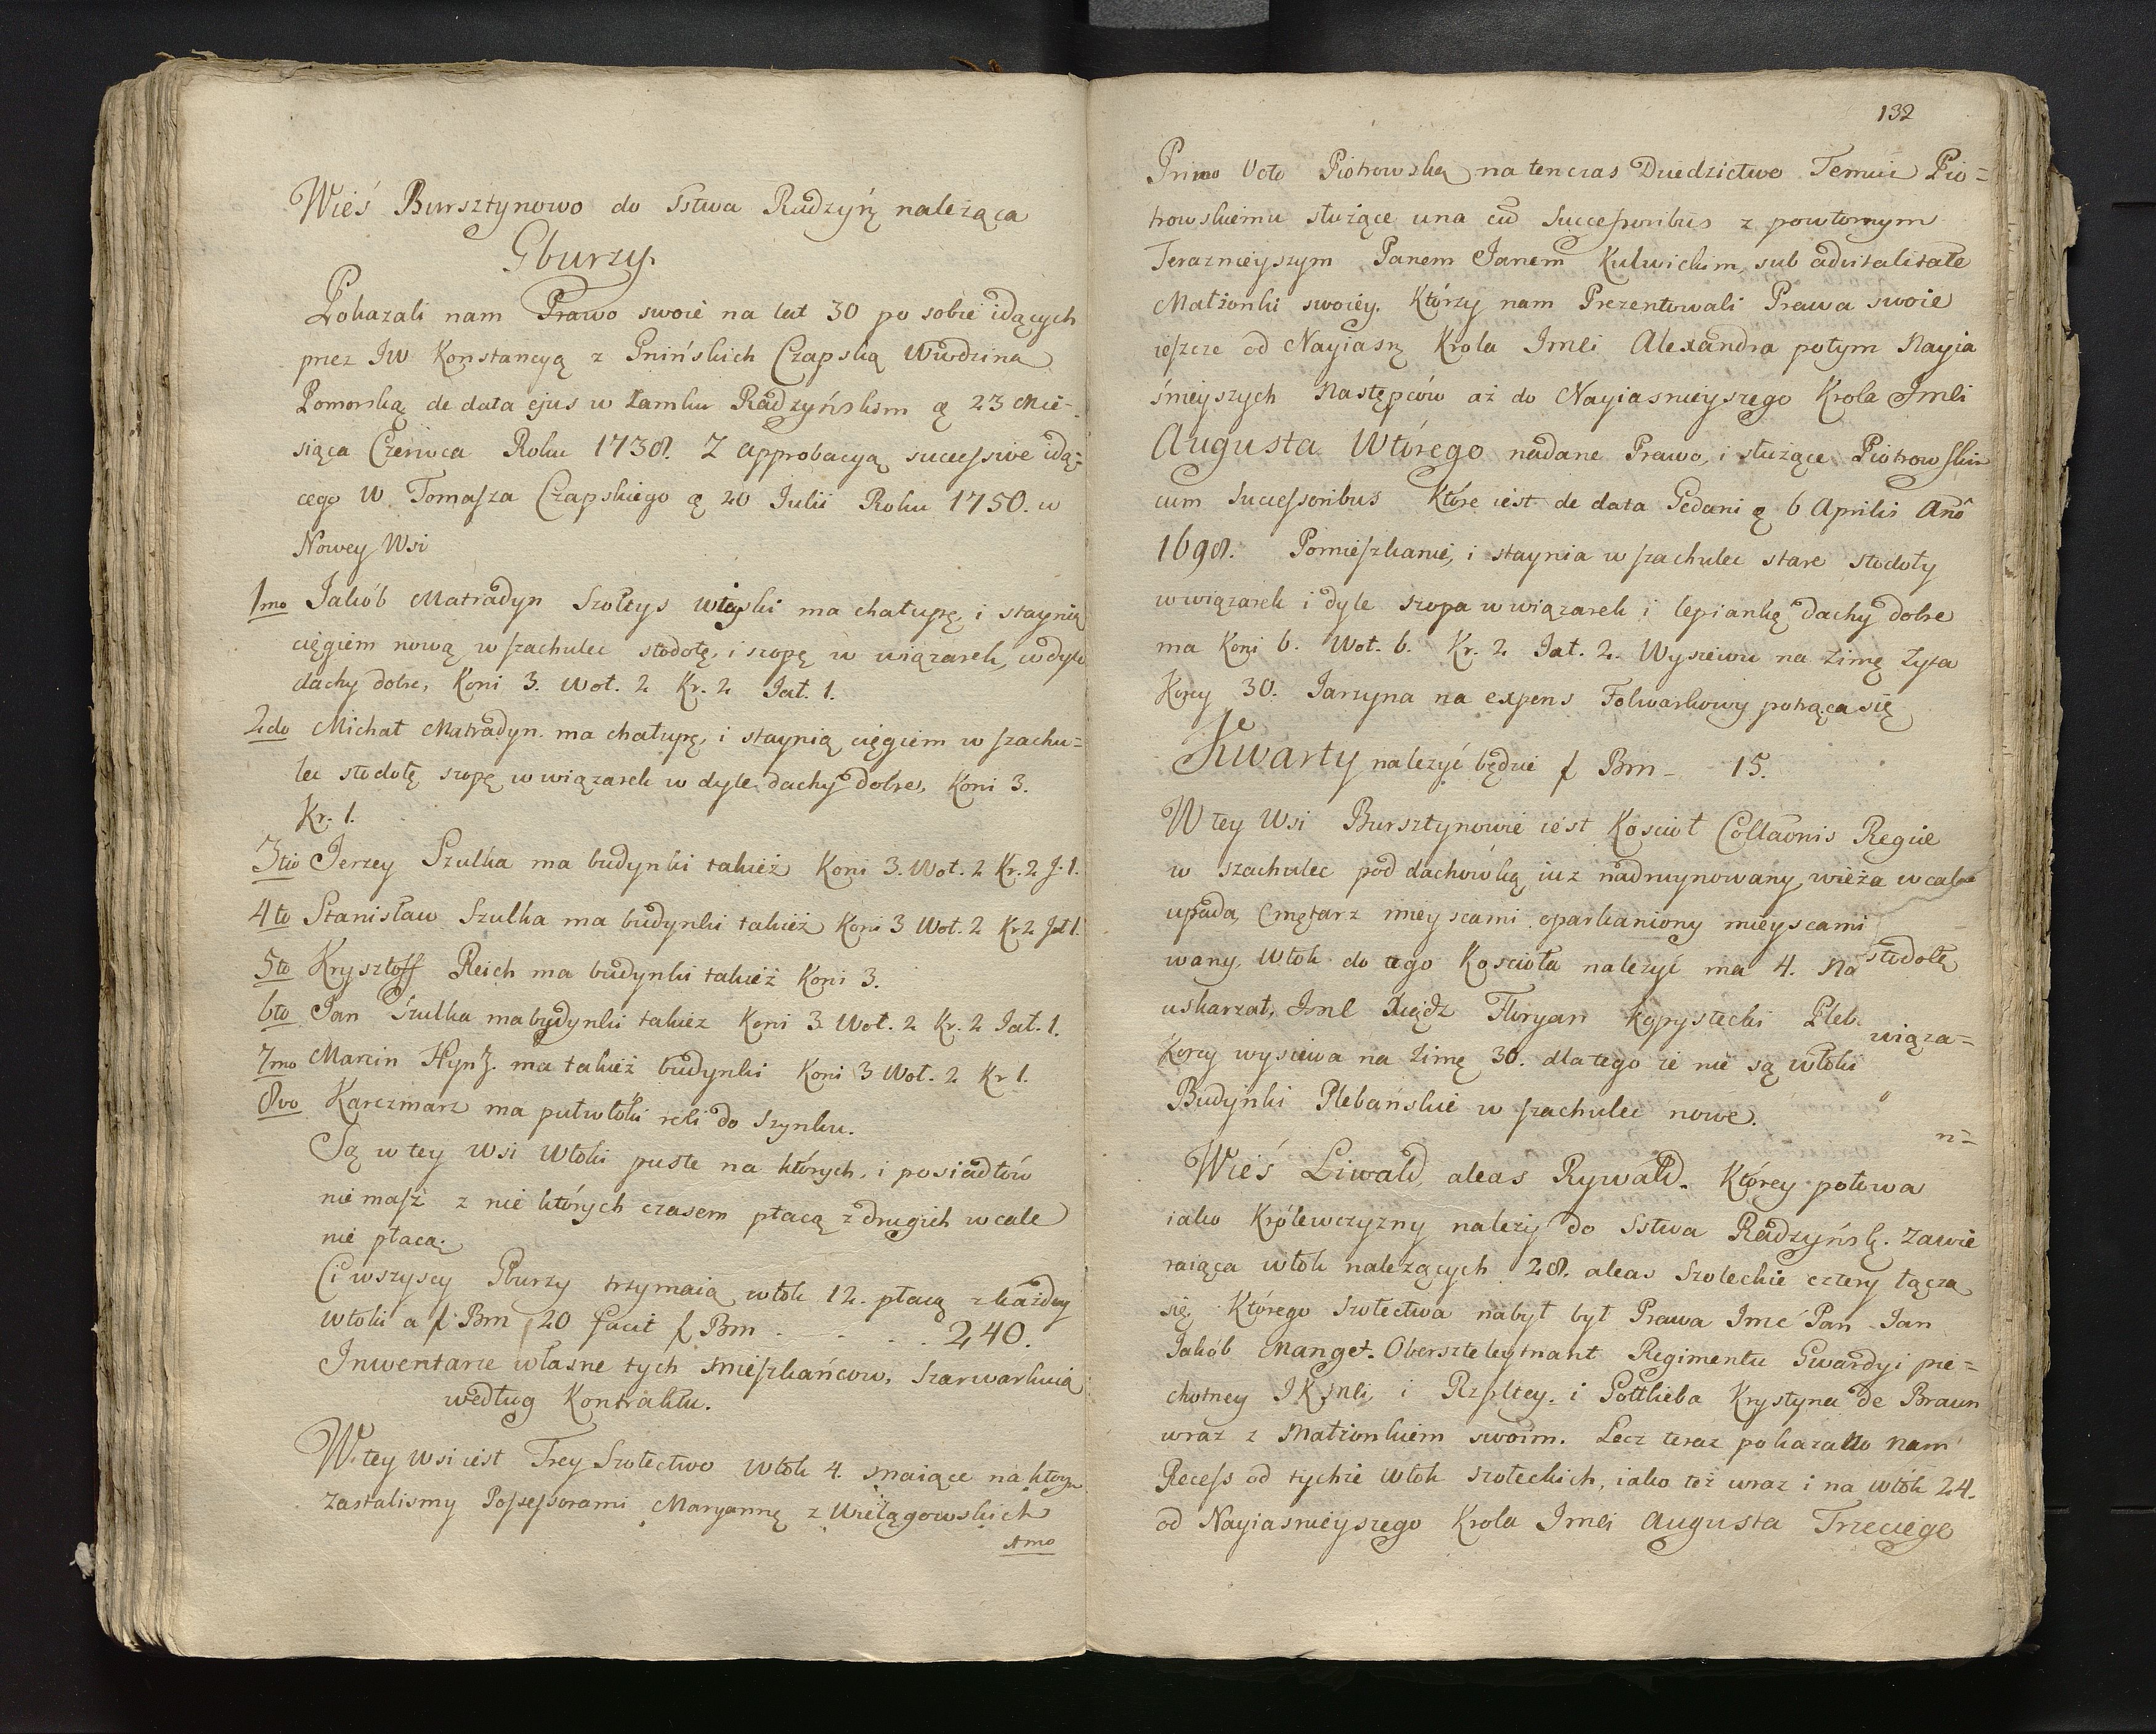 Wieś Bursztynowo do Sstwa Radzyń należąca
Gburzy.
Pokazali nam Prawo swoie na lat 30 po sobie idących
przez JW Konstancyą z Gnińskich Czapską Wwdzina
Pomorską de data ejus w Zamku Radzyńskim d 23 Mie-
siąca Czerwca Roku 1738. Z approbacyą successive idą=
cego W Tomasza Czapskiego d 20 Julii Roku 1750. w
Nowey Wsi
1mo Jakób Matradyn Szołtys wieyski ma chałupę, i staynią
ciągiem nową w szachulec stodołę, i szopę w wiązarek, w dyle
dachy dobre, Koni 3. Woł. 2 Kr. 2 Jał. 1.
2do Michał Matradyn. ma chałupę, i staynią ciągiem w szachu=
lec stodołę szopę w wiązarek w dyle dachy dobre, Koni 3.
Kr. 1.
3tio Jerzey Szulka ma budynki takież Koni 3. Woł. 2 Kr. 2 J. 1.
4to Stanisław Szulka ma budynki takież Koni 3 Woł. 2 Kr 2 Jał 1.
5to Krysztoff Reich ma budynki takież Koni 3.
6to Jan Szulka ma budynki takiez Koni 3 Woł. 2 Kr. 2 Jał. 1.
7mo Marcin Hynz. ma takież budynki Koni 3 Woł. 2 Kr 1.
8vo Karczmarz ma puł włoki roli do Szynku.
Są w tey Wsi Włoki puste na których, i posiadłów
nie masz z nie których czasem płacą z drugich wcale
nie płacą.
Ci wszyscy Gburzy trzymaią włok 12. płacą z każdey
włoki a f Bm 20 facit f Bm - - - - 240.
Jnwentarze własne tych mieszkańcow, Szarwarkuią
według Kontraktu.
W tey wsi iest Trzy Szołectwo Włok 4. maiące na ktor.
zastalismy Possessorami Maryannę z Wielągowskich
1mo
132
Primo Voto Piotrowską na ten czas Dziedzictwo Temuż Pio=
trowskiemu służące una cu Successoribus z powtornym
Terazneyszym Panem Janem Kulwickim, sub advitalitate
Małżonki swoiey. Którzy nam Prezentowali Prawa swoie
ieszcze od Nayiasn Krola Jmci Alexandra potym Nayia
śnieyszych Następców aż do Nayiasnieyszego Krola Jmci
Augusta Wtórego nadane Prawo, i służące Piotrowskim
cum Successoribus Które iest de data Gedani d 6 Aprilis Ano
1698. Pomieszkanie, i staynia w szachulec stare stodoły
w wiązarek i dyle szopa w wiązarek i lepiankę dachy dobre
ma Koni 6. Woł. 6. Kr. 2 Jał. 2. Wysiewu na zimę żyta
Korcy 30. Jarzyna na expens Folwarkowy potrąca się
Kwarty należyć będzie f Bm - 15.
W tey Wsi Bursztynowie iest Kościoł Collaonis Regiie
w szachulec pod dachówką iuż nadruynowany, wieża wcale
upada, Cmętarz mieyscami oparkaniony mieyscami
wany, Włok do tego Kościoła należyć ma 4. Na
stodołę
uskarzał, Jmć Xiądz Floryan Kopystecki Pleb.
wiąza=
Korcy wysiewa na zimę 30. dla tego że nie są włoki
Budynki Plebańskie w szachulec nowe.
n=
Wieś Liwałd, aleas Rywałd. Którey połowa
iako Królewczyzny należy do Sstwa Radzyńsk. Zawie
raiąca włok należących 28. aleas Szołeckie cztery łącza
się Którego Szołectwa nabył był Prawa Jmć Pan Jan
Jakób Manget. Oberszteleytnant Regimentu Gwardyi pie=
chotney JKJmci, i Rzpltey. i Gottlieba Krystyna de Braun
wraz z Małżonkiem swoim. Lecz teraz pokazano nam
Recess od tychże włok szołeckich, iako też wraz i na włók 24.
od Nayiasnieyszego Krola Jmci Augusta Trzeciego